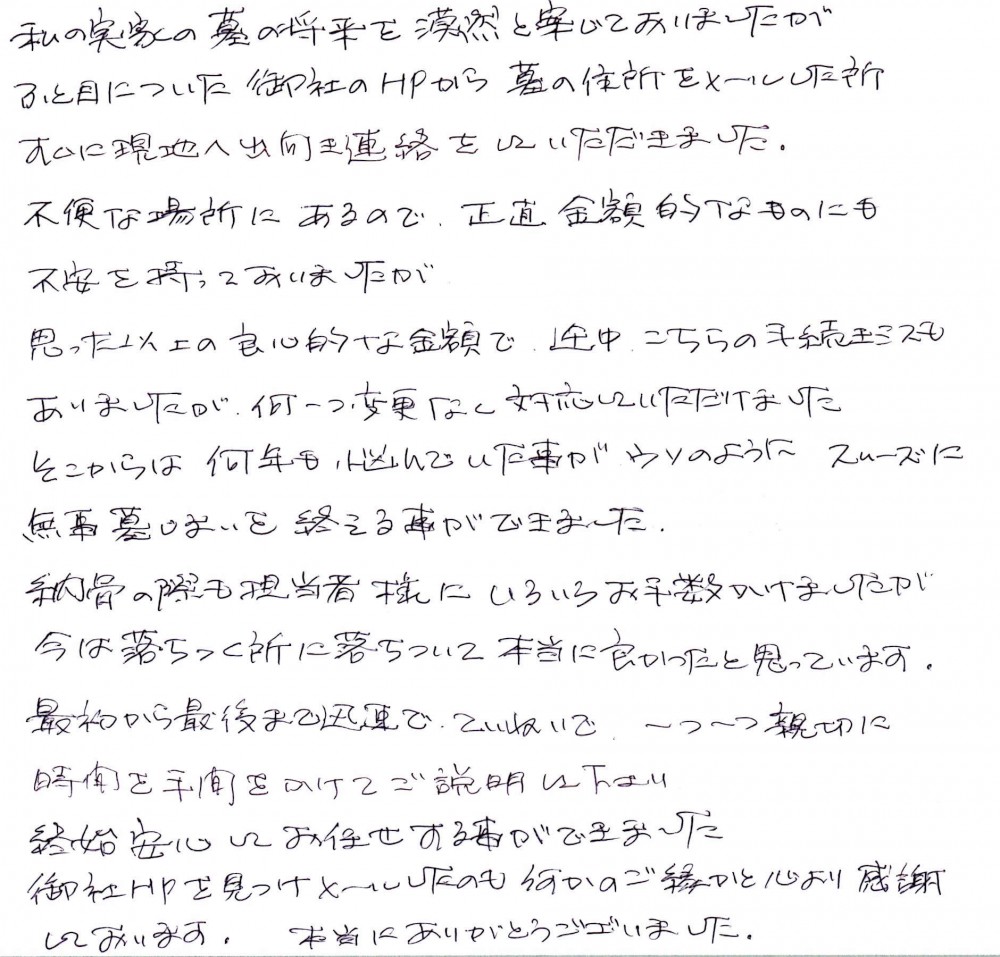 私の実家の墓の将来を漠然と案じておりましたが
ふと目についた御社のHPから墓の住所をメールした所
すぐに現地へ出向き連絡をしていただきました。
不便な場所にあるので、正直金額的なものにも
不安を持っておりましたが
思った以上の良心的な金額で、途中、こちらの手続きミスも
ありましたが、何一つ変更なく対応していただけました
そこからは何年も悩んでいた事がウソのように スムーズに
無事墓じまいを終える事ができました。
納骨の際も担当者様にいろいろお手数かけましたが
今は落ちつく所に落ちついて本当に良かったと思っています。
最初から最後まで迅速で、ていねいで、一つ一つ親切に
時間を手間をかけてご説明して下さり
終始安心してお任せする事ができました
御社HPを見つけメールしたのも何かのご縁かと心より感謝
しております。 本当にありがとうございました。